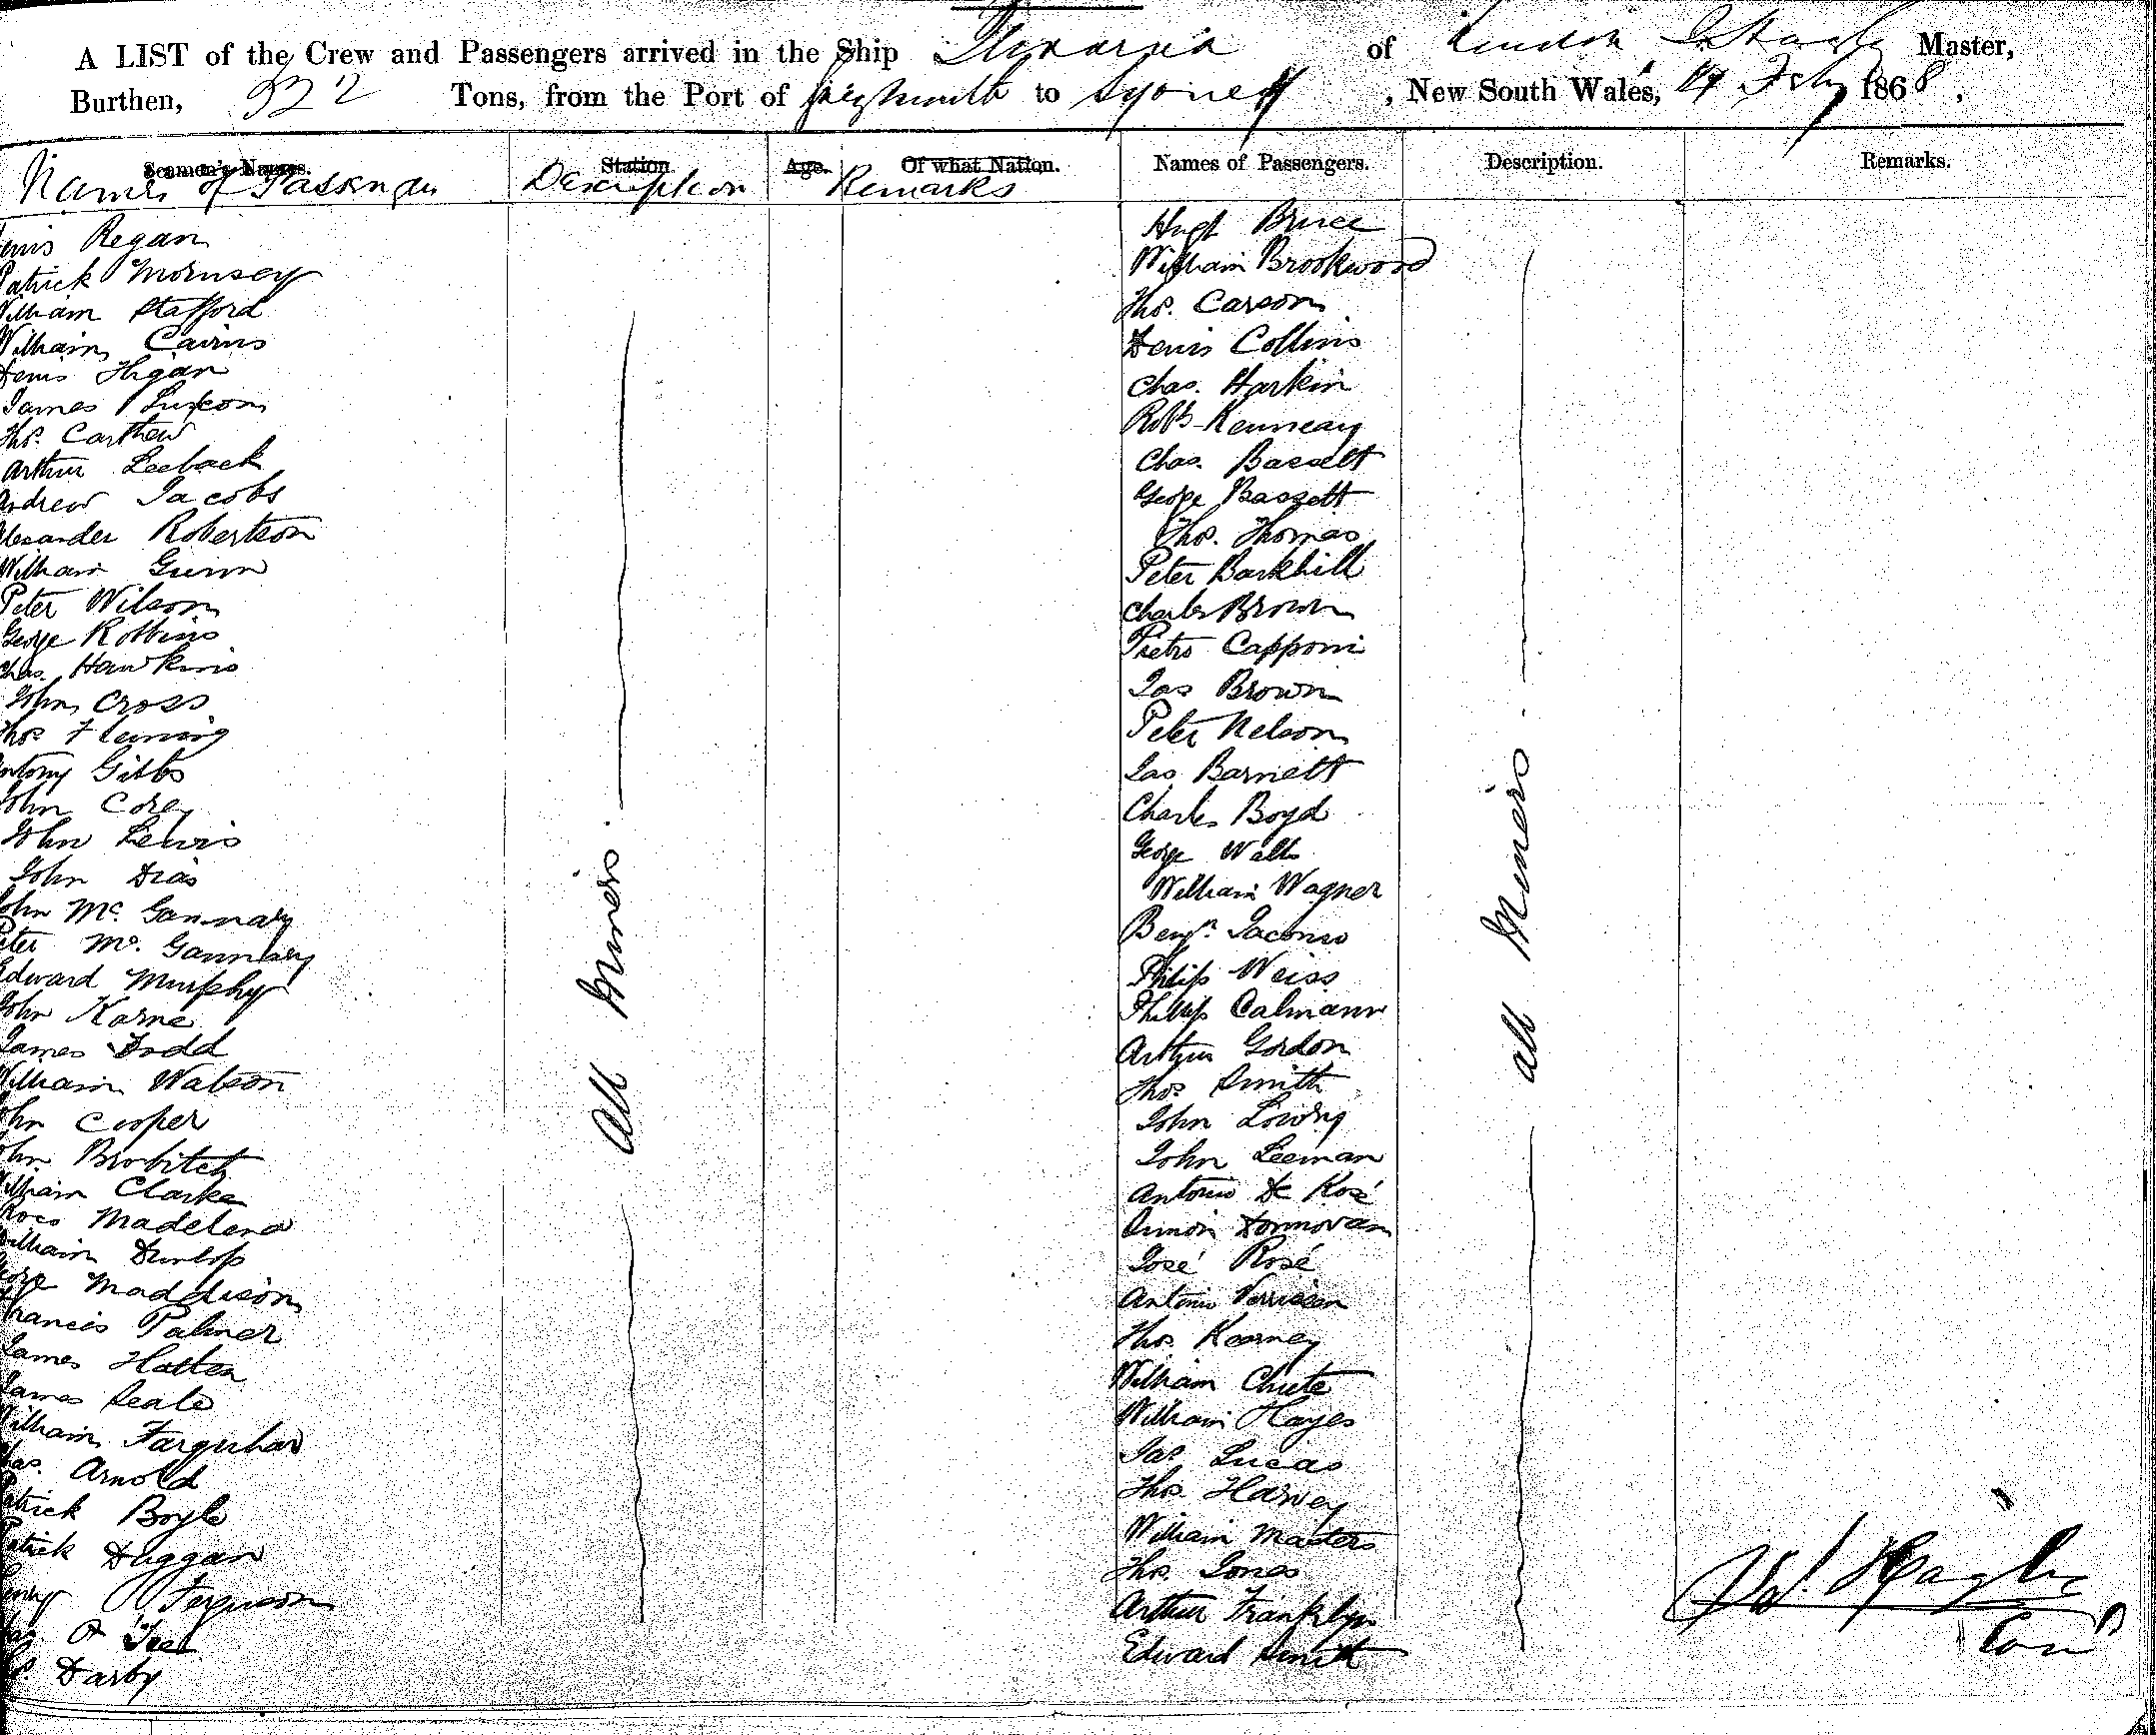 A LIST of the Crew and Passengers arrived in the Ship of London Master,
Burthen, 522 Tons, from the Port of to Sydney, New South Wales, 14 Feby 1868,
Seamen's Names. Station Age. Of what Nation. Names of Passengers. Description. Remarks.
Names of Passenger Description Remarks
Regan
Patrick Mornsey
William Stafford
William Cairns
Denis Higan
James Luxcom
Thos. Carthew
Arthur Leeback
Andrew Jacobs
Alexander Robertson
William Gunn
Peter Wilson
George Robbins
Chas. Hawkins
John Cross
Thos Fleming
Antony Gibbs
John Corey
John Lewis
John Dias
John Mc. Gannay
Peter Mc. Gannay
Edward Murphy
John Karne
James Dodd
William Watson
John Cooper
John Brobitch
William Clarke
Roco Madelena
William Dunlop
George Maddison
Francis Palmer
James Hatten
James Seale
William Farquhar
Arnold
Patrick Boyle
Patrick Duggan
Henry Ferguson
Darby
All Miners.
Hugh Bruce
William Brookwood
Thos. Carson
Denis Collins
Chas. Harkin
Robt. Kenneay
Chas. Bassett
George Bassett
Thos. Thomas
Peter Barkhill
Charles Brown
Pietro Capponi
Jas Brown
Peter Nelson
Jas Barnett
Charles Boyd
George Walls
William Wagner
Benjn. Jacons
Philip Weiss
Phillip Calmann
Arthur Gordon
Thos. Smith
John Lowry
John Leeman
Antonio De Rosé
Simon Donnovan
José Rosé
Antonio
Thos. Kearney
William Chute
William Hayes
Jas. Lucas
Thos. Harvey
William Masters
Thos. Jones
Arthur Franklyn
Edward Smith
all Miners